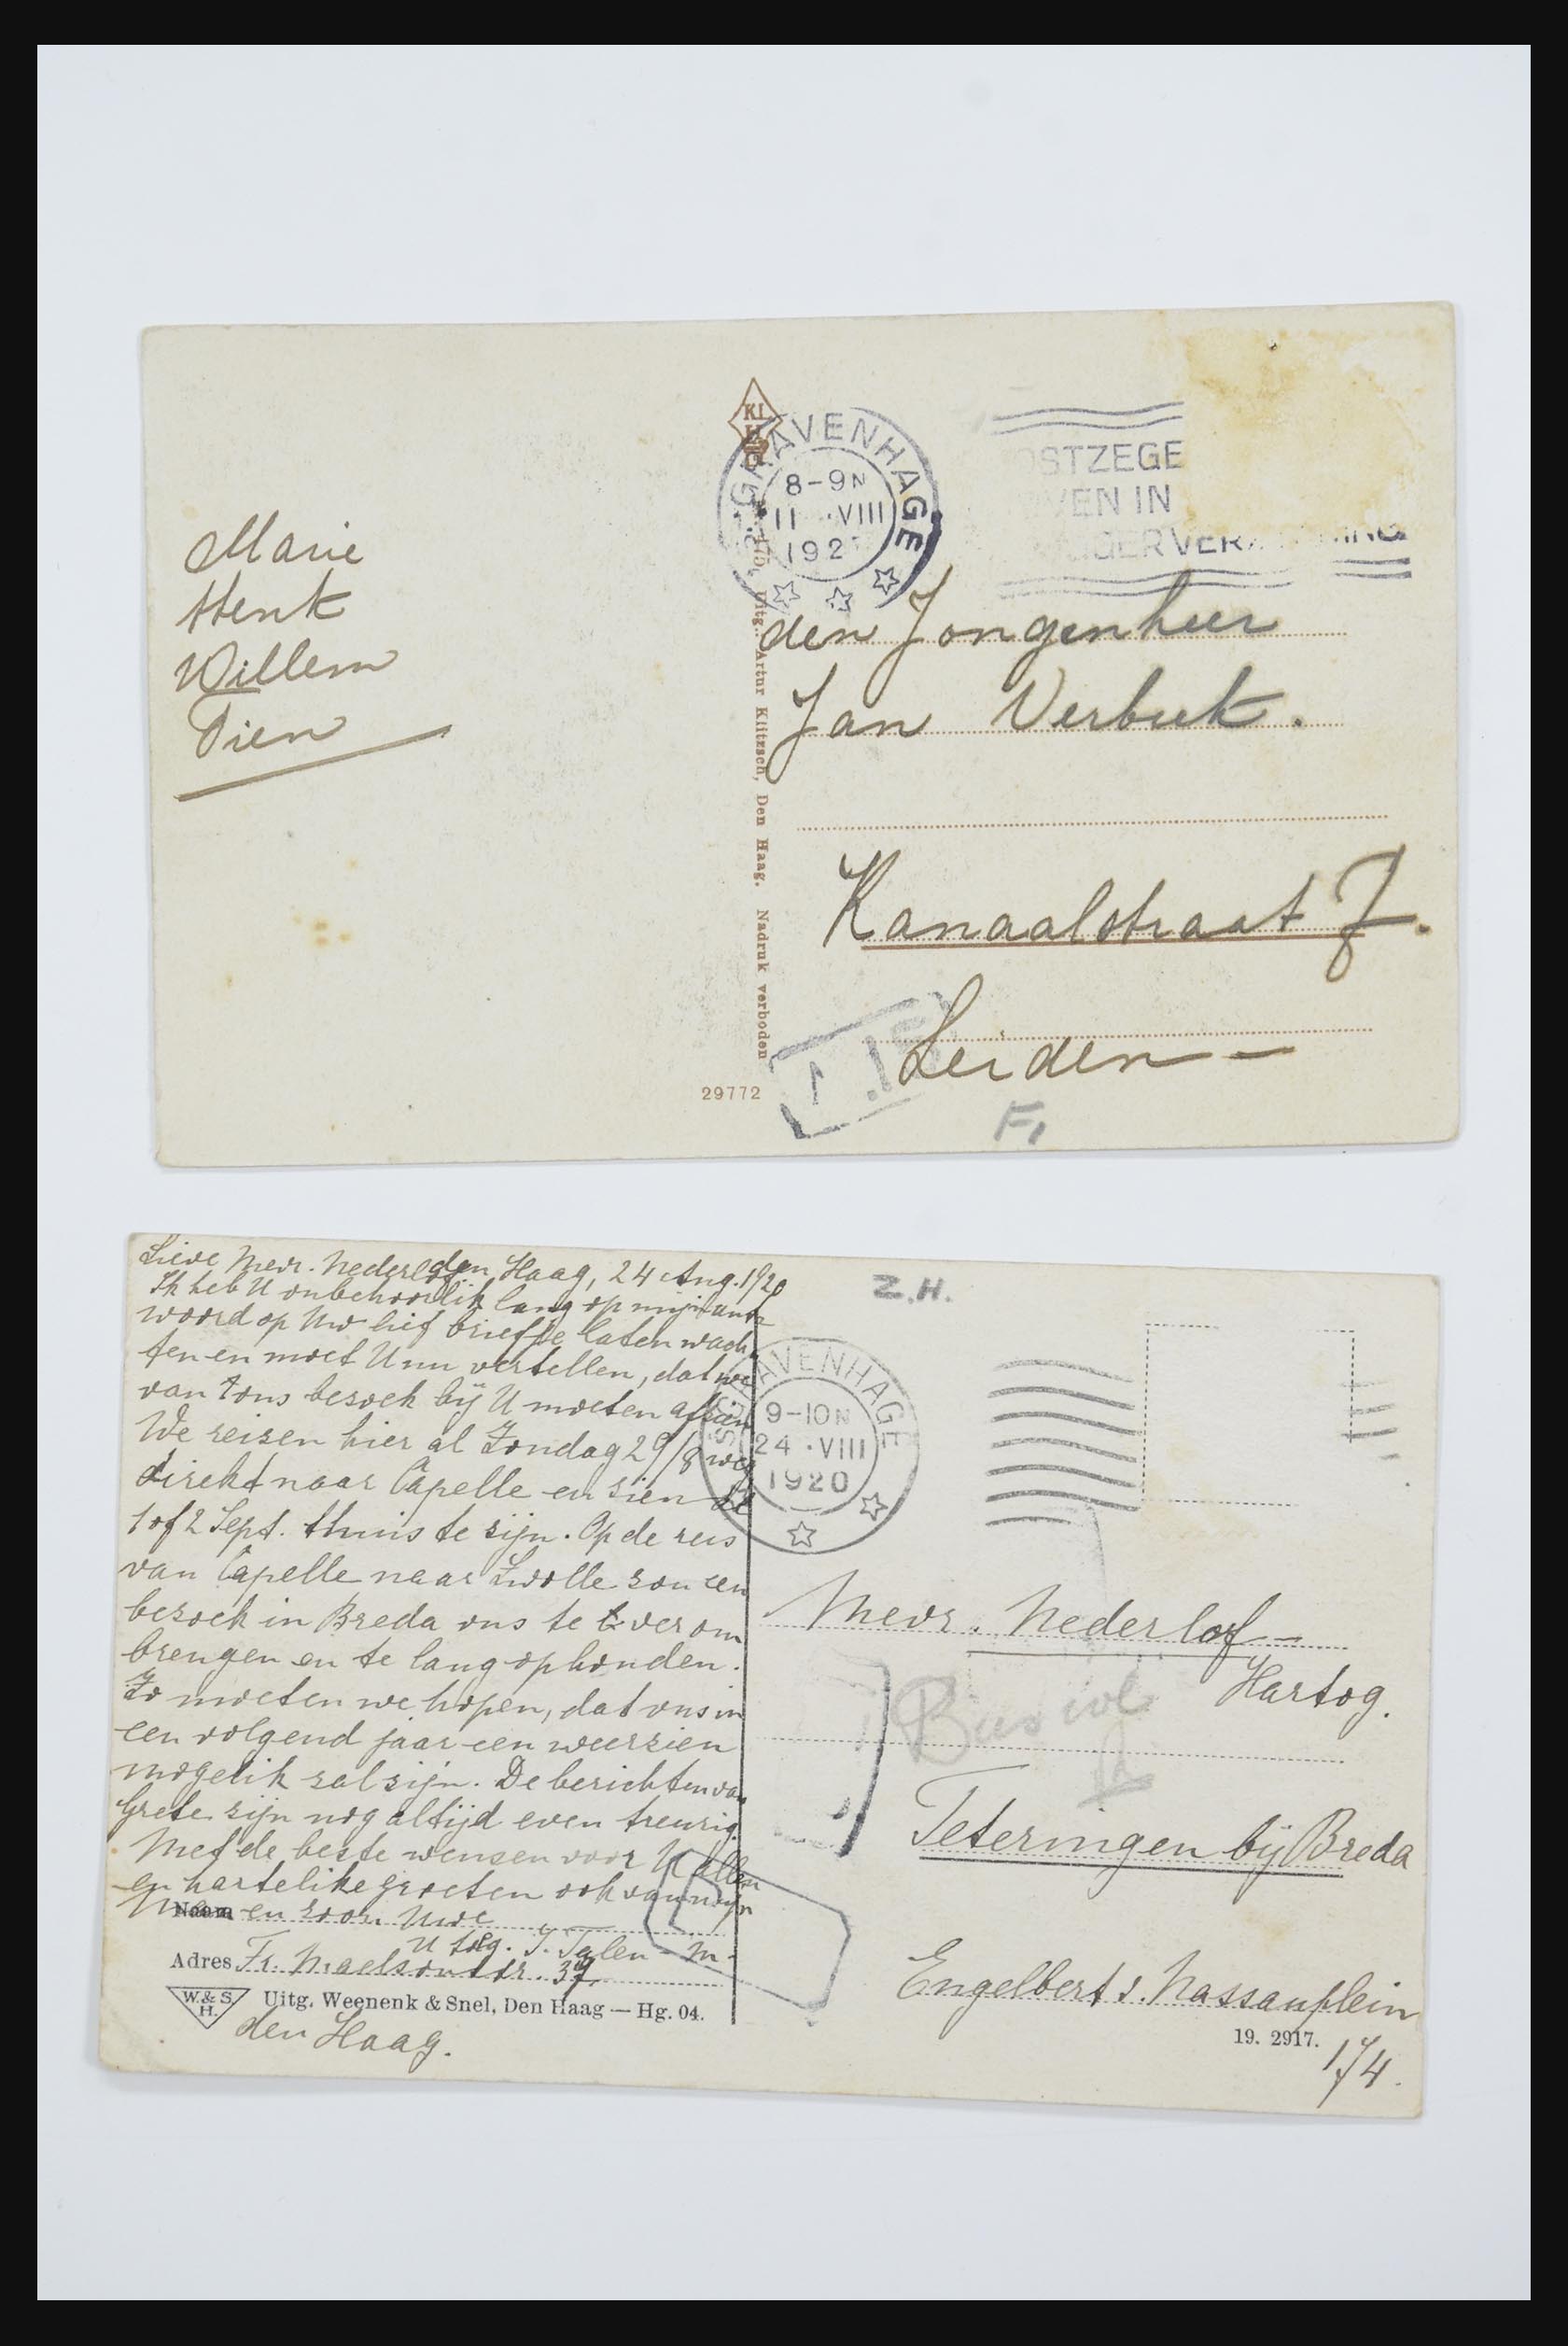 'S GRAVENHAGE
8-9N
11 VIII
192
OSTZEGE
VEN IN
Marie
Henk
Willem
Tien
den Jongenheer
Jan Verbeek.
Kanaalstraat
Leiden
Uitg. Artur Klitzsch, Den Haag. Nadruk verboden
29772
F,
Lieve Mevr. Nederlof den Haag, 24 Aug. 1920
Ik heb U onbehoorlik lang op mijn ant-
woord op Uw lief briefje laten wach-
ten en moet U nu vertellen, dat we
van ons bezoek bij U moeten afzien
We reizen hier al Zondag 29/8 weg
direkt naar Capelle en zien de
1 of 2 Sept. thuis te zijn. Op de reis
van Capelle naar Zwolle zou een
bezoek in Breda ons te ver om
brengen en te lang ophouden.
Zo moeten we hopen, dat ons in
een volgend jaar een weerzien
mogelik zal zijn. De berichten van
Grete zijn nog altijd even treurig.
Met de beste wensen voor U allen
en hartelike groeten ook van mijn
Man en zoon Uwe
Naam
U toeg. J. Talen - M-
Adres Fr. Maelsonstr. 37
W. & S. H.
Uitg. Weenenk & Snel, Den Haag — Hg. 04.
den Haag.
Z.H.
'S GRAVENHAGE
9-10N
24 · VIII
1920
Mevr. Nederlof-
Hartog.
Teteringen bij Breda
Engelbert v. Nassauplein
19. 2917.
174.